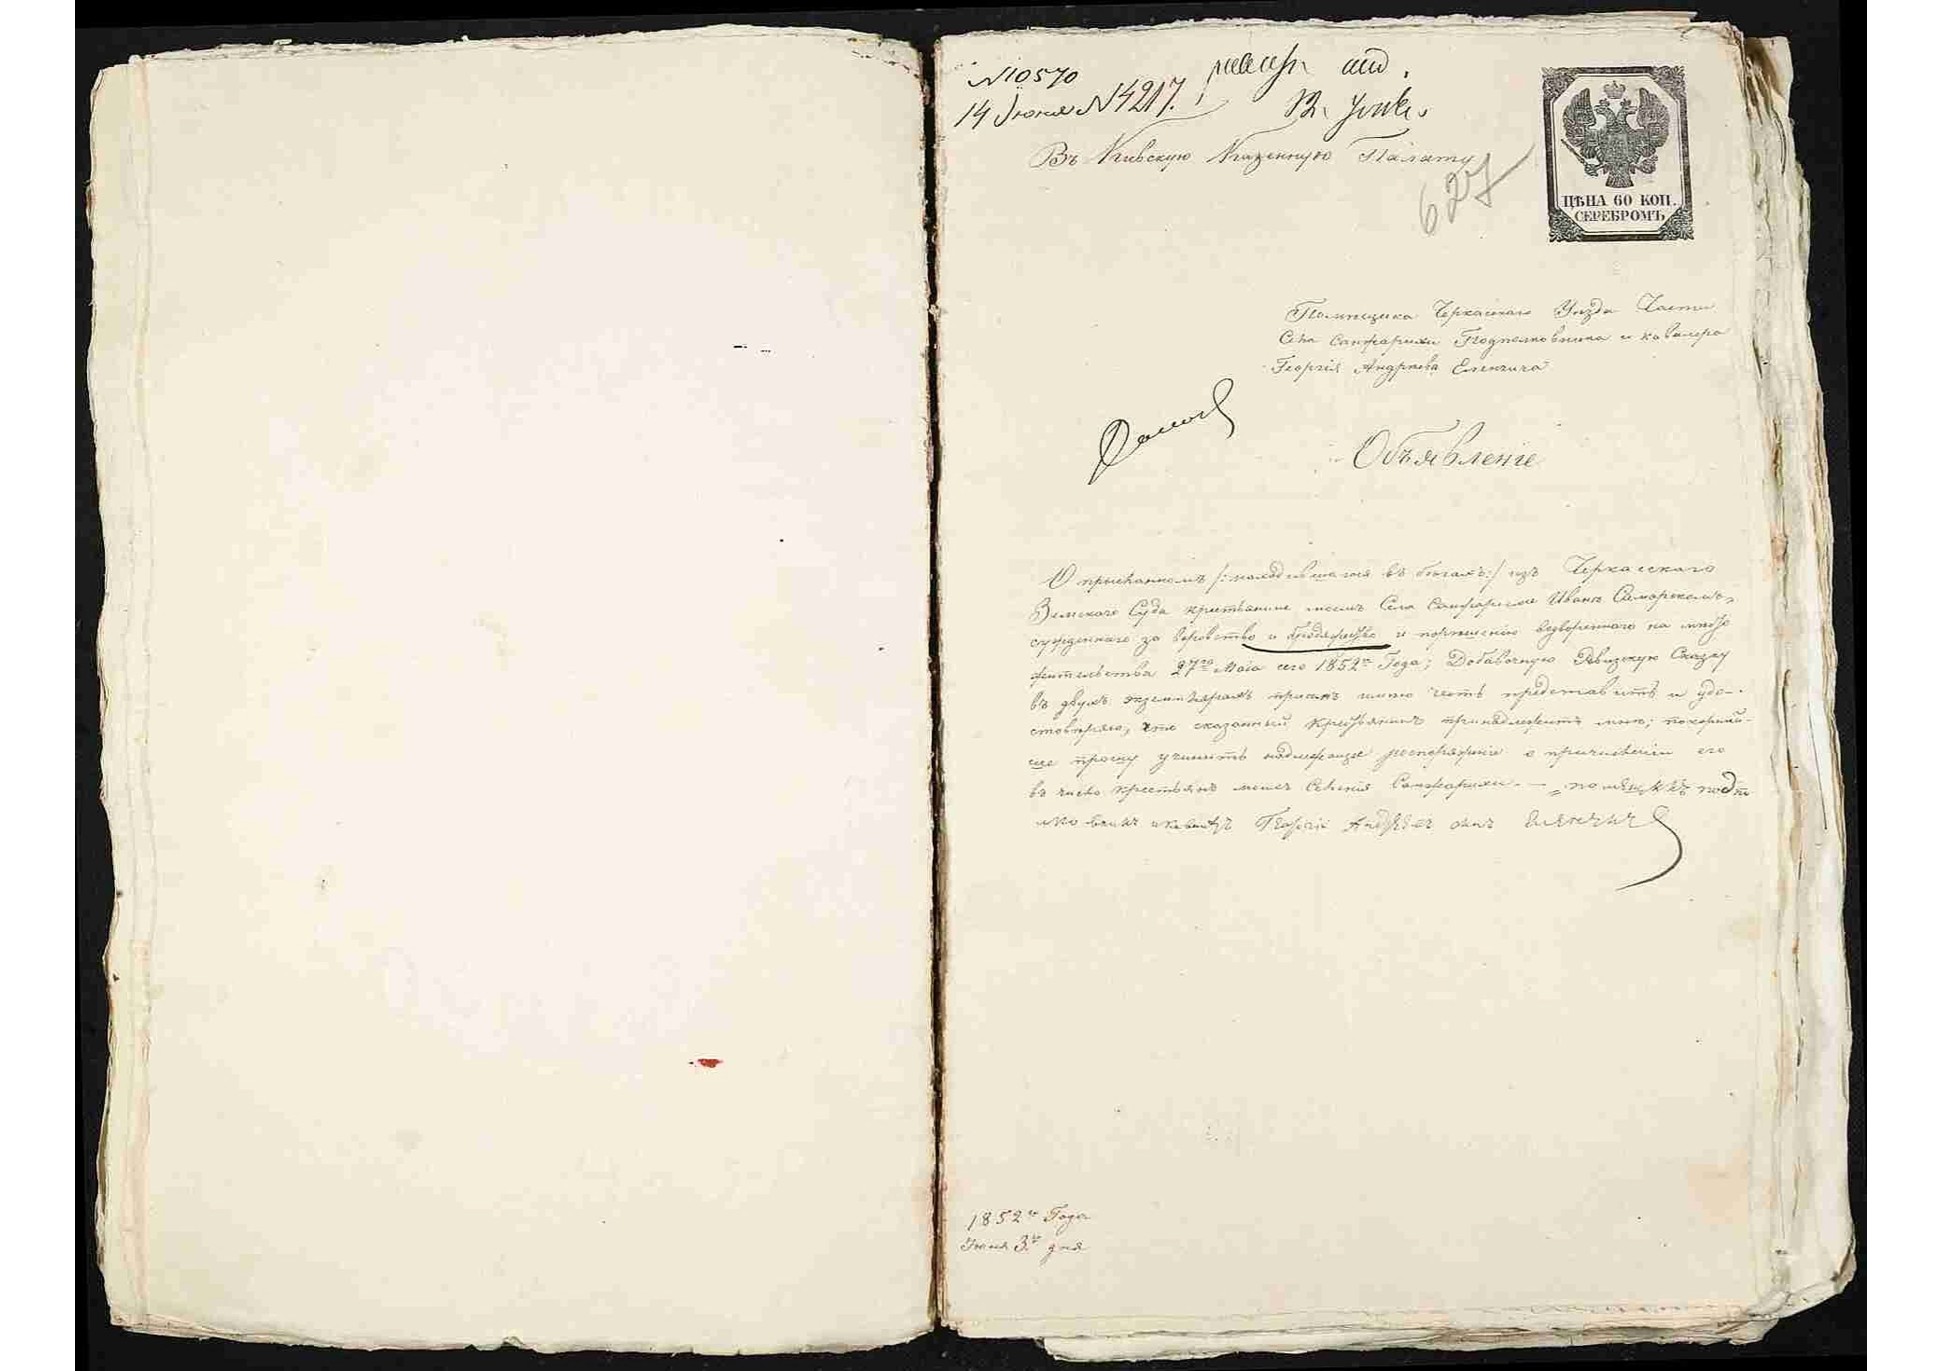 № 10570
14 Июня № 4217.
Въ Кіевскую Казенную Палату
627
ЦѢНА 60 КОП.
СЕРЕБРОМЪ.
Помѣщика Черкаскаго Уѣзда Части
Села Санжарихи Подполковника и кавалера
Георгія Андрѣева Еленчича
Объявленіе
О прысканномъ /: находившагося въ бѣгахъ :/ изъ Черкасскаго
Земскаго Суда крестьянине моемъ Села Санжарихи Иванѣ Самарскомъ,
сужденнаго за воровство и бродяжество и по рѣшенію водвореннаго на место
жительства 27го Мая сего 1852го Года; Добавочную Ревизскую Сказку
въ двухъ экземплярахъ присемъ имѣю честь представить и удо-
стовѣряю, что сказанный Крестьянинъ принадлежитъ мнѣ; покорнѣй-
ше прошу учинить надлежащее роспоряженіе о причисленіи его
въ число крестьянъ моихъ Селенія Санжарихи. — помѣщикъ подпо
лковникъ и кавалеръ Георгій Андреевъ сынъ Еленчичъ
1852го Года
Июня 3го дня